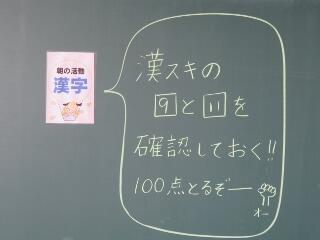 朝の活動
漢字
漢スキの
9と11を
確認しておく!!
100点とるぞー
オー